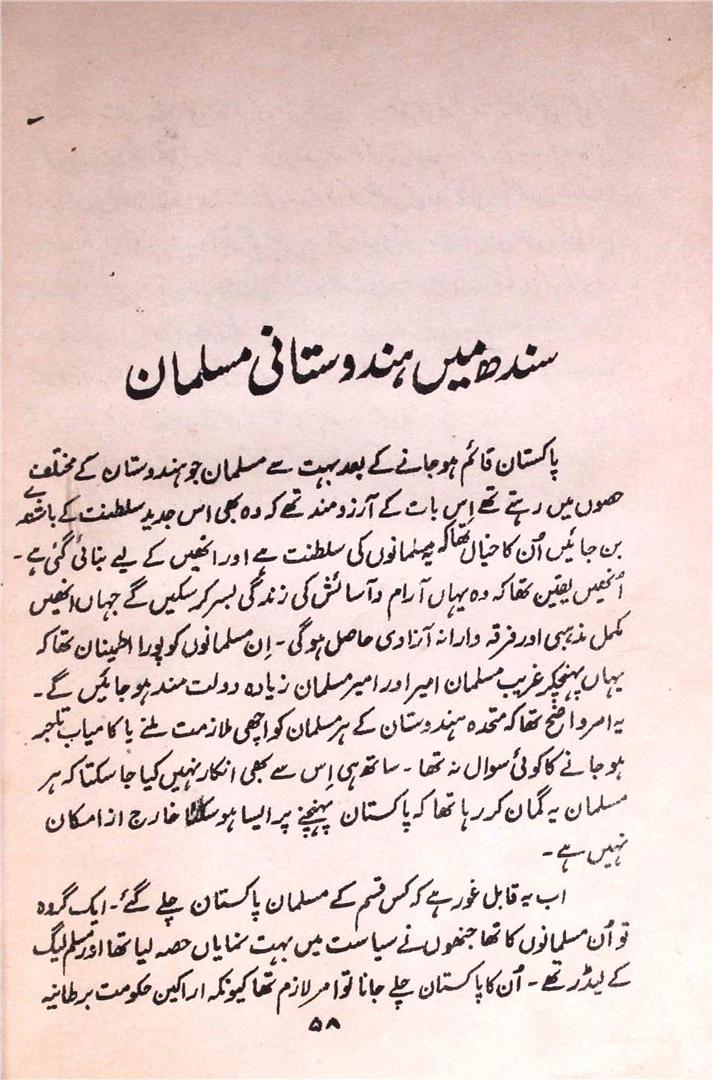 سندھ میں ہندوستانی مسلمان
پاکستان قائم ہو جانے کے بعد بہت سے مسلمان جو ہندوستان کے مختلف
حصوں میں رہتے تھے اِس بات کے آرزومند تھے کہ وہ بھی اس جدید سلطنت کے باشندے
بن جائیں اُن کا خیال تھا کہ یہ مسلمانوں کی سلطنت ہے اور انھیں کے لیے بنائی گئی ہے۔
اُنھیں یقین تھا کہ وہ یہاں آرام و آسائش کی زندگی بسر کر سکیں گے جہاں انھیں
مکمل مذہبی اور فرقہ وارانہ آزادی حاصل ہوگی۔ اِن مسلمانوں کو پورا اطمینان تھا کہ
یہاں پہنچکر غریب مسلمان امیر اور امیر مسلمان زیادہ دولت مند ہو جائیں گے۔
یہ امر واضح تھا کہ متحدہ ہندوستان کے ہر مسلمان کو اچھی ملازمت ملنے یا کامیاب تاجر
ہو جانے کا کوئی سوال نہ تھا۔ ساتھ ہی اِس سے بھی انکار نہیں کیا جا سکتا کہ ہر
مسلمان یہ گمان کر رہا تھا کہ پاکستان پہنچنے پر ایسا ہو سکنا خارج از امکان
نہیں ہے۔
اب یہ قابل غور ہے کہ کس قسم کے مسلمان پاکستان چلے گئے۔ ایک گروہ
تو اُن مسلمانوں کا تھا جنھوں نے سیاست میں بہت نمایاں حصہ لیا تھا اور مسلم لیگ
کے لیڈر تھے۔ اُن کا پاکستان چلے جانا تو امر لازم تھا کیونکہ اراکین حکومت برطانیہ
۵۸